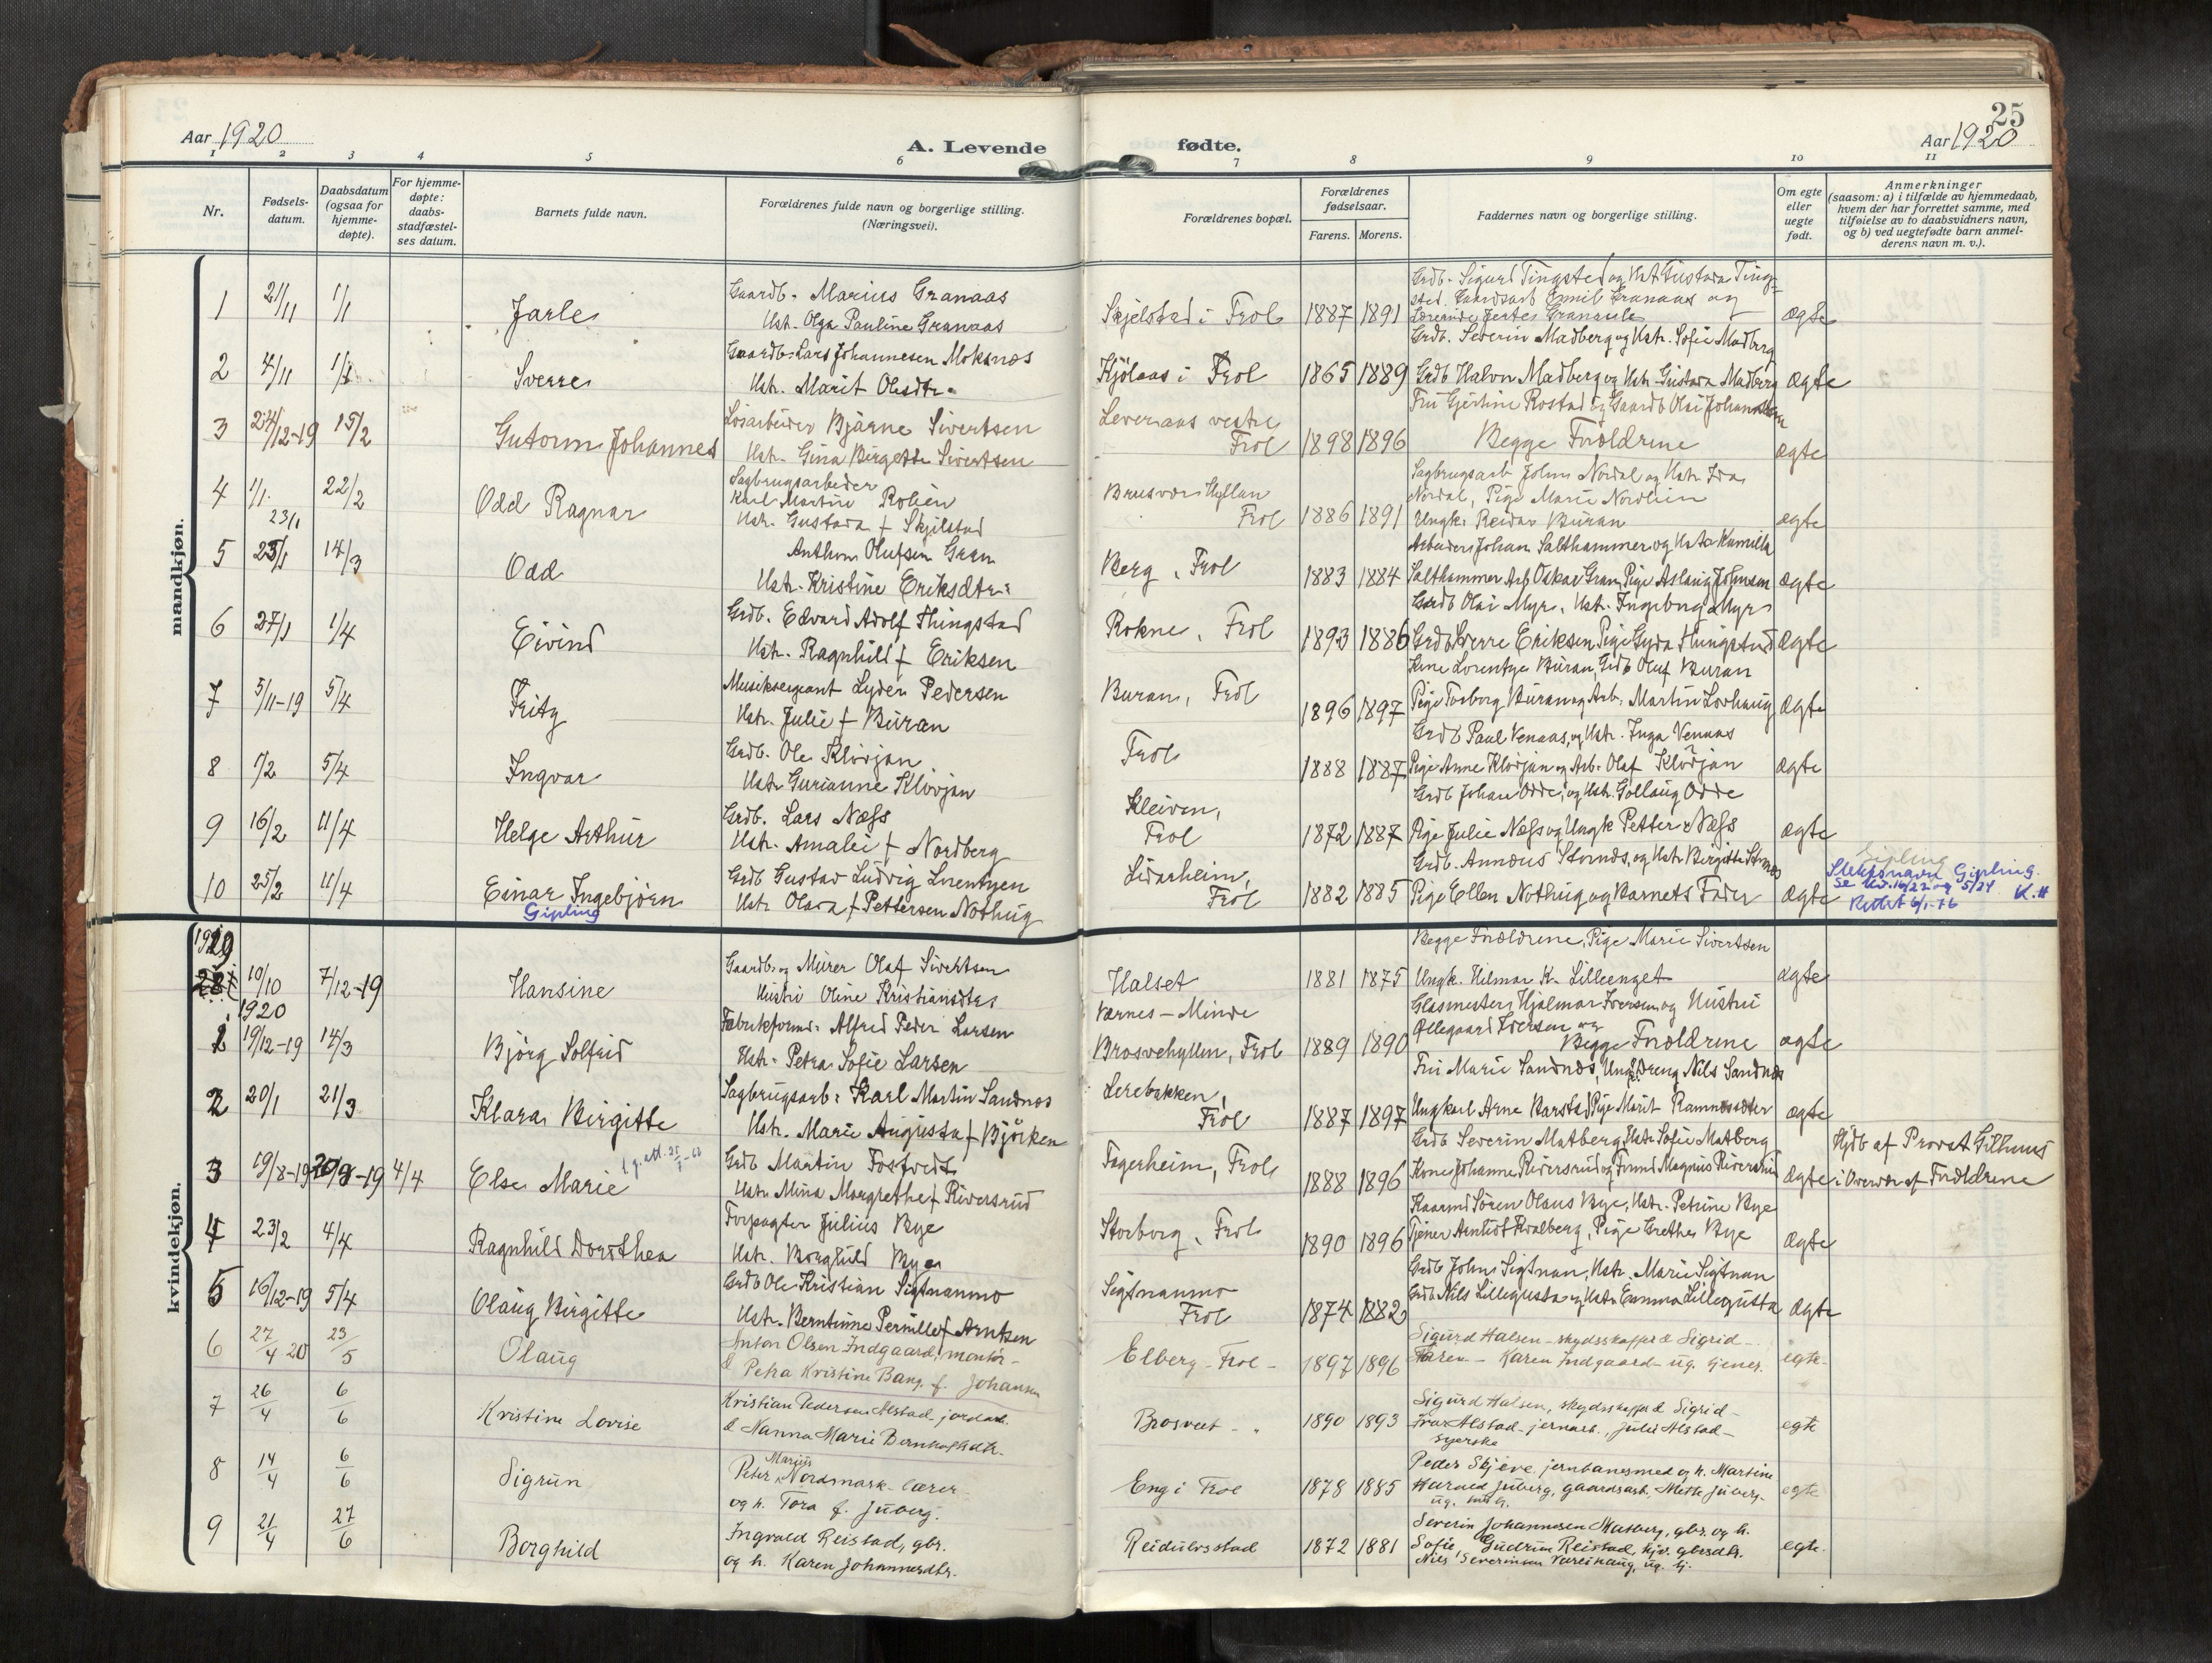 25
Aar 1920
A. Levende
fødte.
Aar 1920
1 2 3 4 5 6 7 8 9 10 11
Nr.
Fødsels-
datum.
Daabsdatum
(ogsaa for
hjemme-
døpte).
For hjemme-
døpte:
daabs-
stadfæstel-
ses datum.
Barnets fulde navn.
Forældrenes fulde navn og borgerlige stilling.
(Næringsvei).
Forældrenes bopæl.
Forældrenes
fødselsaar.
Farens. Morens.
Faddernes navn og borgerlige stilling.
Om egte
eller
uegte
født.
Anmerkninger
(saasom: a) i tilfælde av hjemmedaab,
hvem der har forrettet samme, med
tilføielse av to daabsvidners navn,
og b) ved uegtefødte barn anmel-
derens navn m. v.).
mandkjøn.
1 21/11 1/1 Jarle
Gaardb. Marius Granaas
Hst. Olga Pauline Granaas
Skjelstad i Frol 1887 1891
Grdb. Sigurd Tingsted og Hst Gustava Ting-
sted. Gaardsarb Emil Granaas og
Lærerinde
ægte
2 4/11 1/1 Sverre
Gaardb. Lars Johannesen Moksnes
Hst. Marit Olesdtr.
Hjölaas i Frol 1865 1889
Grdb. Severin Madberg og Hstr. Sofie Madberg
Grdb Halvn Madberg og Hstr Gustava Madberg
ægte
3 24/12-19 15/2 Gutorm Johannes
Løsarbeider Bjarne Sivertsen
Hst. Gina Birgette Sivertsen
Leveraas vestre
Frol 1898 1896
Fru Gjertine Rostad og Gaardb Olai Johannesen
Begge Foreldrene
ægte
4 1/1. 22/2 Odd Ragnar
Sagbrugsarbeider
Karl Martin Rolien
Hst. Gustava f Skjelstad
Brusve Hyllan
Frol 1886 1891
Sagbrugsarb Johns Nordal og Hstr Ida
Nordal, Pige Marie Nordlien
Ungk. Reidar Buran
ægte
5 23/1 23/1 14/3 Odd
Anthon Olufsen Gran
Hst. Kristine Eriksdtr.
Berg, Frol 1883 1884
Arbeider Johan Salthammer og Hst Kamilla
Salthammer Arb Oskar Gran Pige Aslaug Johnsen
ægte
6 27/1 1/4 Eivind
Grdb. Edvard Adolf Thingstad
Hst. Ragnhild f Eriksen
Rokne, Frol 1893 1886
Grdb Olai Myr. Hst. Ingeborg Myr
Grdb Sverre Eriksen Pige Gyda Thingstad
ægte
7 5/11-19 5/4 Fritz
Musiksergeant Lyder Pedersen
Hst. Julie f Buran
Buran, Frol 1896 1897
Kone Lorentze Buran, Grdb Oluf Buran
Pige Torborg Buran og Arb. Martin Lovhaug
ægte
8 1/2 5/4 Ingvar
Grdb. Ole Klövjan
Hstr Gurianne Klövjan
Frol 1888 1887
Grdb Paul Venaas, og Hstr. Inga Venaas
Pige Anne Klövjan og Arb. Olaf Klövjan
ægte
9 16/2 11/4 Helge Arthur
Grdb. Lars Næss
Hst. Amalie f Nordberg
Kleiven,
Frol 1872 1887
Grdb Johan Odde, og Hstr. Gollaug Odde
Pige Julie Næss og Ungk Petter Næss
ægte
10 25/2 11/4 Einar Ingebjørn
Gipling
Grdb Gustav Ludvig Lorentzen
Hst Olava f Pettersen Nøthug
Lidarheim,
Frol 1882 1885
Grdb. Annæus Stornes, og Hstr Birgitte Stornes
Pige Ellen Nothug og Barnets Fader
ægte
Gipling
Slektsnavn Gipling.
Rettet 6/1-76 K.H
kvindekjøn.
1919
28 10/10 7/12-19 Hansine
Gaardb. og Murer Olaf Sivertsen
Hustru Oline Kristiansdtr
Halset 1881 1875
Begge Foreldrene, Pige Marie Sivertsen
Ungk. Hilmar K. Lilleenget
ægte
1920
1 19/12-19 14/3 Bjørg Solfrid
Fabrikformd. Alfred Peder Larsen
Hst. Petra Sofie Larsen
Værnes - Minde
Brosvehyllen, Frol 1889 1890
Glasmester Hjalmar Iversen og Hustru
Ollegaard Iversen og
Begge Foreldrene
ægte
2 20/1 21/3 Klara Birgitte
Sagbrugsarb. Karl Martin Sandnes
Hst. Marie Augusta f Björken
Lerebakken,
Frol 1887 1897
Fru Marie Sandnes, Ung. Dreng Nils Sandnes
Ungkarl Arne Barstad Pige Marit
ægte
3 19/8-19 4/4 Else Marie
Grdb Martin Fostvedt
Hst. Mina Margrethe f Riversrud
Fagerheim, Frol 1888 1896
Grdb Severin Matberg, Hstr Sofie Matberg
Kone Johanne Riversrud og Formd Magnus Riversrud
ægte
Hjdb af Provst Gilhuus
i Overvær af Foreldrene
4 23/2 4/4 Ragnhild Dorothea
Forpagter Julius Bye
Hst. Borghild Bye
Storborg, Frol 1890 1896
Kaarmd Sören Olaus Bye, Hst. Petrine Bye
Tjener Arntiot Kvalberg, Pige Grethe Bye
ægte
5 16/12-19 5/4 Olaug Birgitte
Grdb Ole Kristian Sigtnanmo
Hst. Berntinne Pernille f Arntsen
Sigtnanmo
Frol 1874 1882
Grdb Johns Sigtnan, Hst. Marie Sigtnan
Grdb Nils Lillegusta og Hst. Emma Lillegusta
ægte
6 27/4 20 23/5 Olaug
Anton Olsen Indgaard, montör -
& Petra Kristine Bang f. Johansen
Elberg - Frol - 1897 1896
Sigurd Halsen - skydsskaffer & Sigrid -
Karen Indgaard - ug. tjener.
egte
7 26/4 6/6 Kristine Lovise
Kristian Pedersen Alstad, jordarb.
& Nanna Marie Bernhoftsdtr.
Brosveet - " 1890 1893
Sigurd Halsen, skydsskaffer & Sigrid -
Ivar Alstad - jernarb., Julie Alstad -
syerske
egte
8 14/4 6/6 Sigrun
Marius
Peter Nordmark - lærer
og h. Tora f. Juberg.
Eng i Frol 1878 1885
Peder Skjeve, jernbanesmed og h. Martine
Harald Juberg, gaardsarb. Mette Juberg -
egte
9 21/4 27/6 Borghild
Ingvald Reistad, gbr.
og h. Karen Johannesdtr.
Reidulvsstad 1872 1881
Severin Johannesen Matberg, gbr. og h.
Sofie, Gudrun Reistad, hjv. gbrsdtr.
Nils Severinsen Vareihaug, ug. tj.
egte.